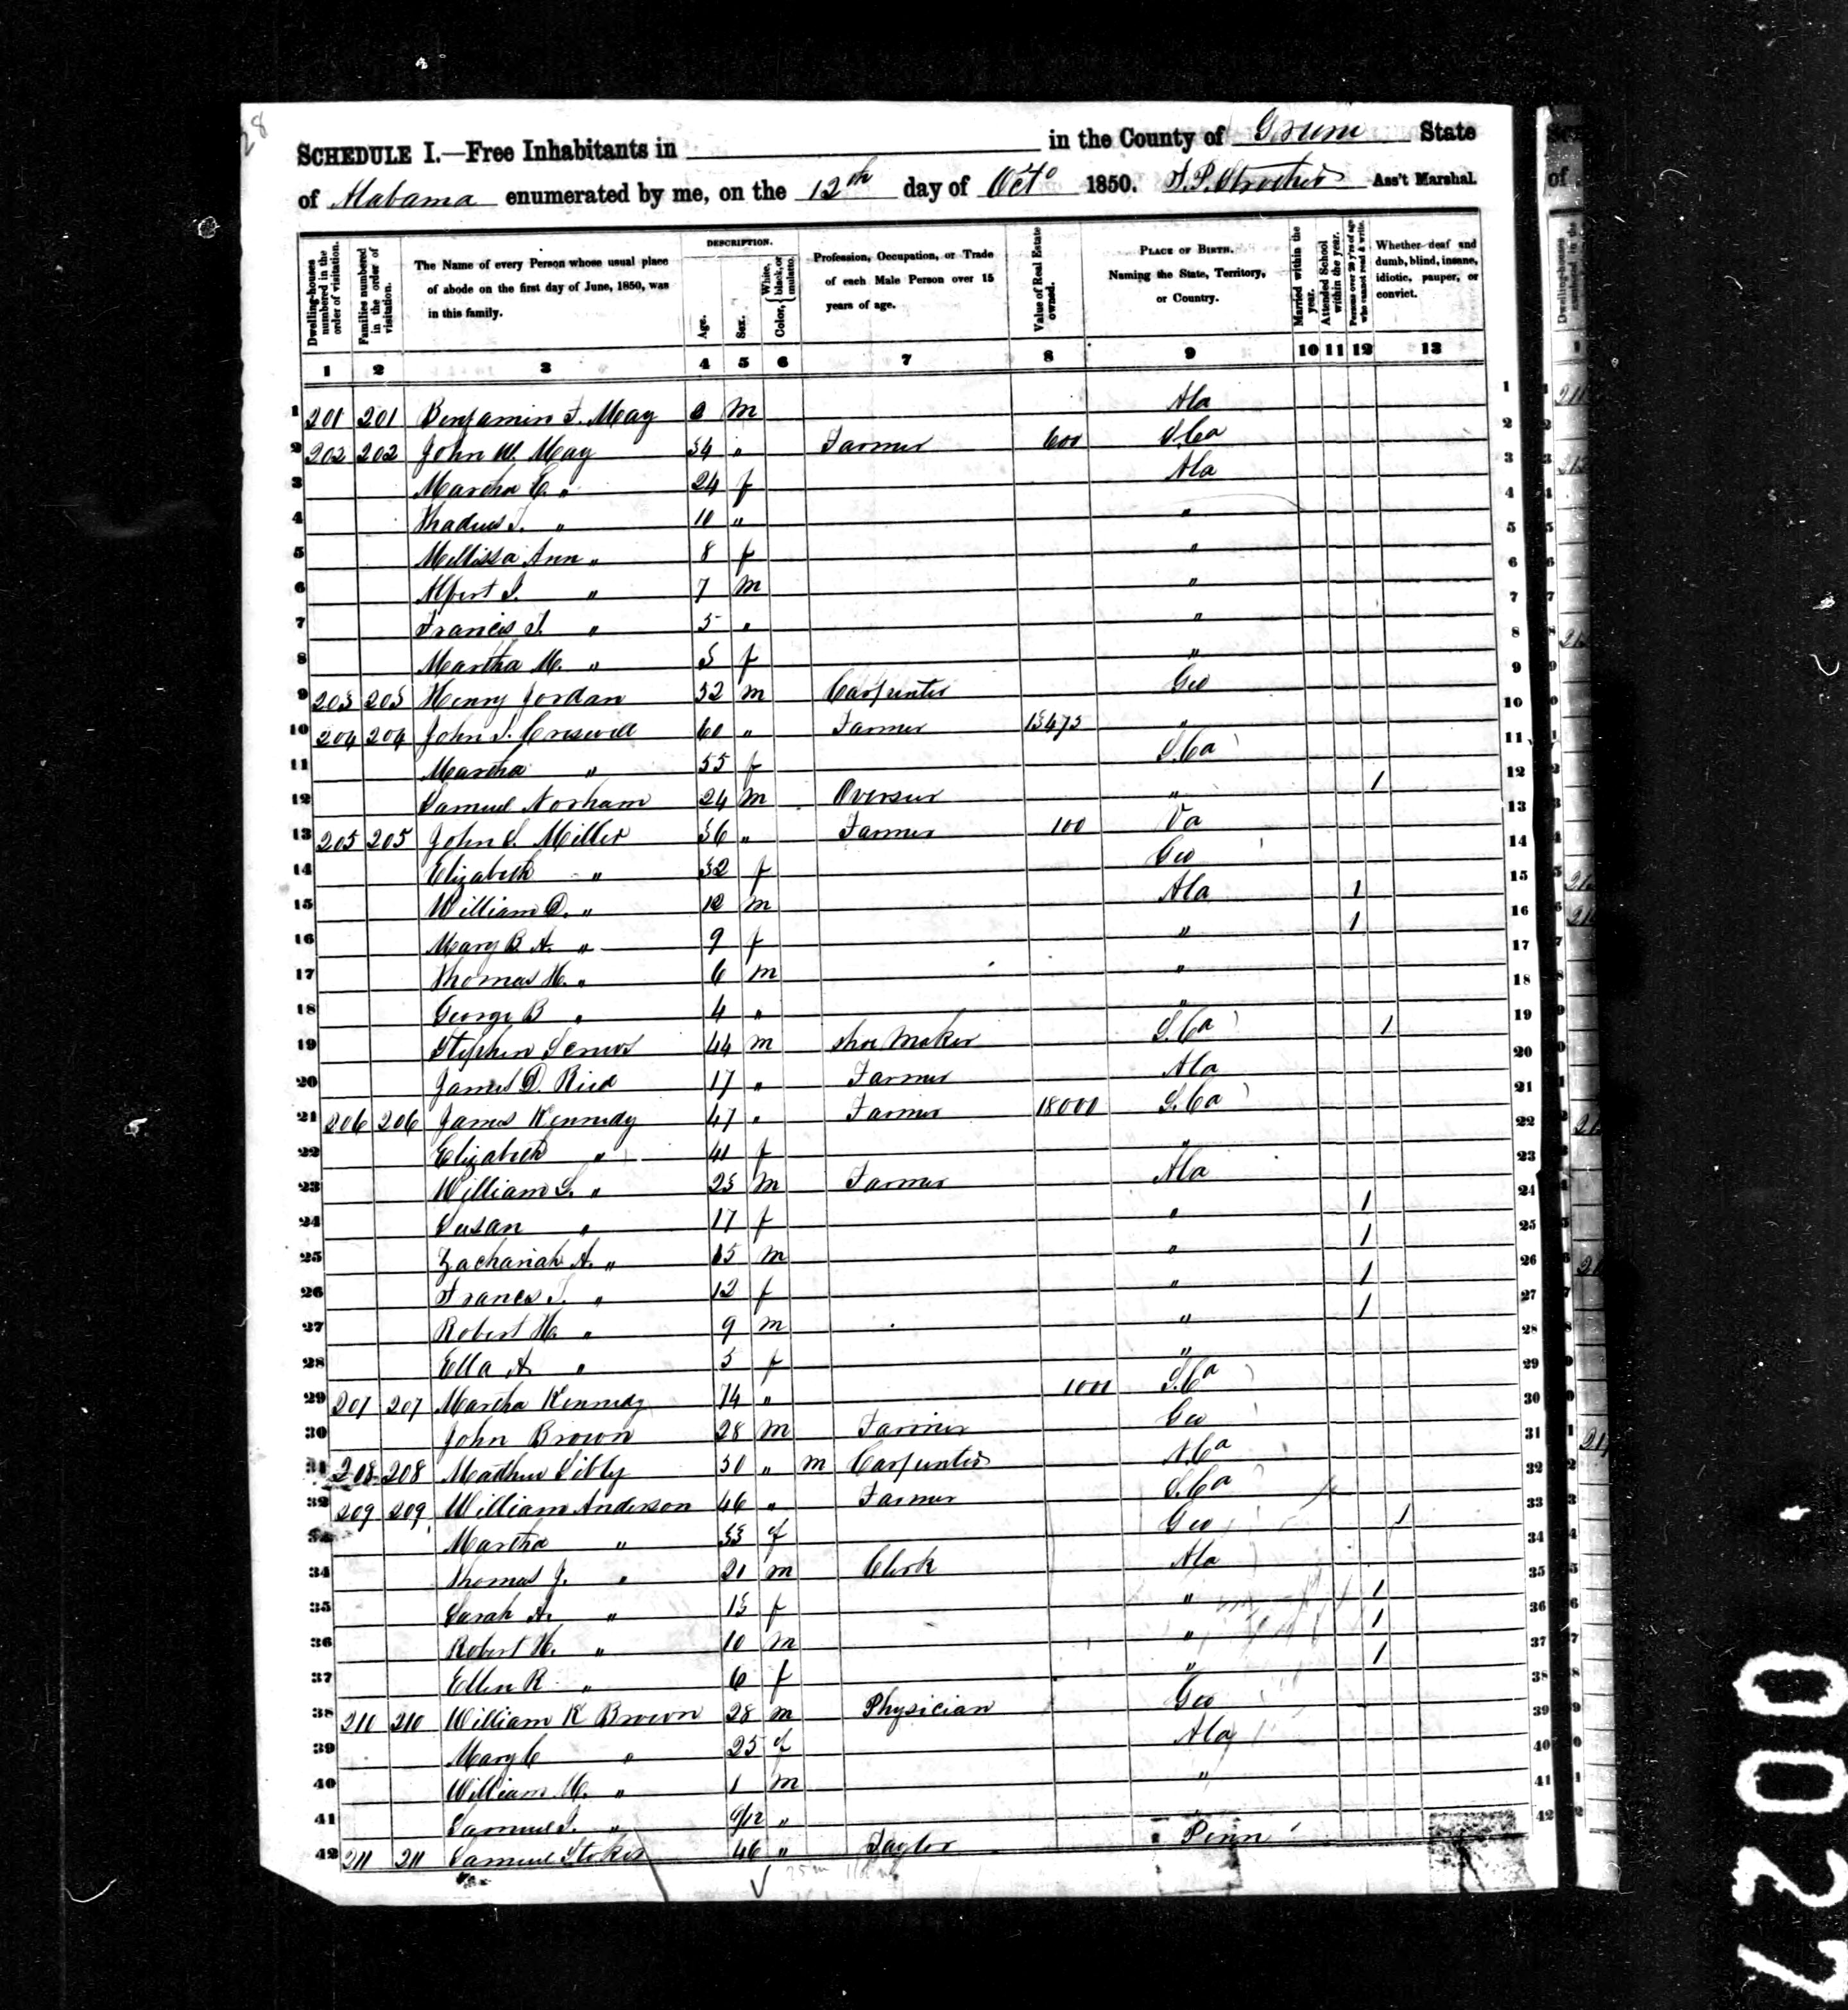 28
SCHEDULE I.—Free Inhabitants in in the County of Green State
of Alabama enumerated by me, on the 12th day of Octo 1850. Ass't Marshal.
Dwelling-houses numbered in the order of visitation.
Families numbered in the order of visitation.
The Name of every Person whose usual place of abode on the first day of June, 1850, was in this family.
DESCRIPTION.
Age.
Sex.
Color, { White, black, or mulatto.
Profession, Occupation, or Trade of each Male Person over 15 years of age.
Value of Real Estate owned.
PLACE OF BIRTH. Naming the State, Territory, or Country.
Married within the year.
Attended School within the year.
Persons over 20 y'rs of age who cannot read & write.
Whether deaf and dumb, blind, insane, idiotic, pauper, or convict.
1 2 3 4 5 6 7 8 9 10 11 12 13
1 201 201 Benjamin F. May m Ala 1
2 202 202 John W. May 34 " Farmer 600 S.Ca 2
3 Martha C. " 24 f Ala 3
4 Thadeus " 10 " " 4
5 Mellissa Ann " 8 f " 5
6 Albert " 7 m " 6
7 Francis " 5 " " 7
8 Martha M. " 3 f " 8
9 203 203 Henry Jordan 32 m Carpenter Geo 9
10 204 204 John Creswell 60 " Farmer 13475 " 10
11 Martha " 55 f S.Ca 11
12 Samuel Norham 24 m Overseer " 1 12
13 205 205 John S. Miller 36 " Farmer 100 Va 13
14 Elizabeth " 32 f Geo 14
15 William D. " 12 m Ala 1 15
16 Mary B A. " 9 f " 1 16
17 Thomas H. " 6 m " 17
18 George B " 4 " " 18
19 Stephen 44 m Shoe Maker S.Ca 1 19
20 James D. Ried 17 " Farmer Ala 20
21 206 206 James Kennedy 47 " Farmer 18000 S.Ca 21
22 Elizabeth " 41 f " 22
23 William S. " 23 m Farmer Ala 23
24 Susan " 17 f " 1 24
25 Zachariah A. " 15 m " 1 25
26 Frances " 12 f " 1 26
27 Robert W. " 9 m " 1 27
28 Ella A. " 5 f " 28
29 207 207 Martha Kennedy 74 " 1000 S.Ca 29
30 John Brown 28 m Farmer Geo 30
31 208 208 Mathew Sibly 50 " m Carpenter N.Ca 31
32 209 209 William Anderson 46 " Farmer S.Ca 32
Martha " 33 f Geo 1 33
34 Thomas J. " 21 m Clerk Ala 34
35 Sarah A. " 13 f " 1 35
36 Robert H. " 10 m " 1 36
37 Ellen R " 6 f " 1 37
38 210 210 William K Brown 28 m Physician Geo 38
39 Mary C " 25 f Ala 39
40 William M. " 1 m " 40
41 Samuel " 9/12 " 41
42 211 211 Samuel Stokes 46 " Taylor Penn 42
0027